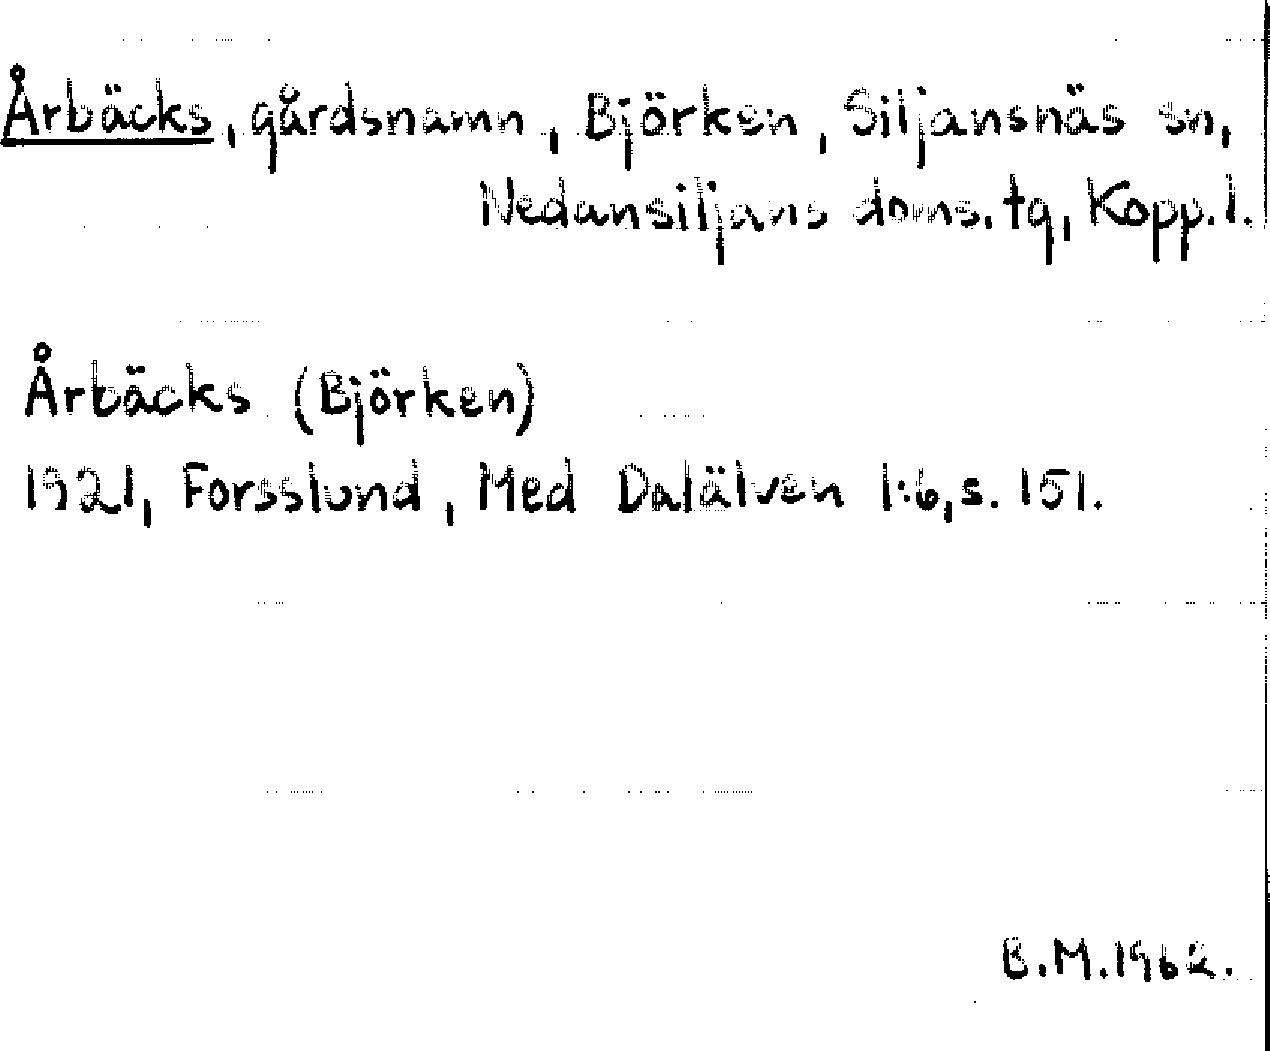 Årbäcks, gårdsnamn, Björken, Siljansnäs sn,
Nedansiljans doms.tg, Kopp.l.
Årbäcks (Björken)
1921, Forsslund, Med Dalälven 1:6, s. 151.
B.M.1962.